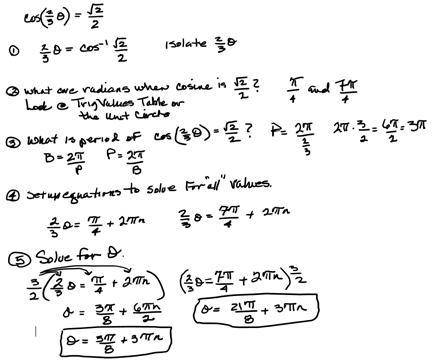 cos(2/3 θ) = √2/2
① 2/3 θ = cos⁻¹ √2/2 isolate 2/3 θ
② What are radians when cosine is √2/2? π/4 and 7π/4
Look @ Trig Values Table or
the Unit Circle
③ What is period of cos(2/3 θ) = √2/2? P = 2π/(2/3) 2π · 3/2 = 6π/2 = 3π
B = 2π/P P = 2π/B
④ Set up equations to solve for "all" values.
2/3 θ = π/4 + 2πn 2/3 θ = 7π/4 + 2πn
⑤ Solve for θ.
3/2 (2/3 θ = π/4 + 2πn) (2/3 θ = 7π/4 + 2πn) 3/2
θ = 3π/8 + 6πn/2 θ = 21π/8 + 3πn
θ = 3π/8 + 3πn